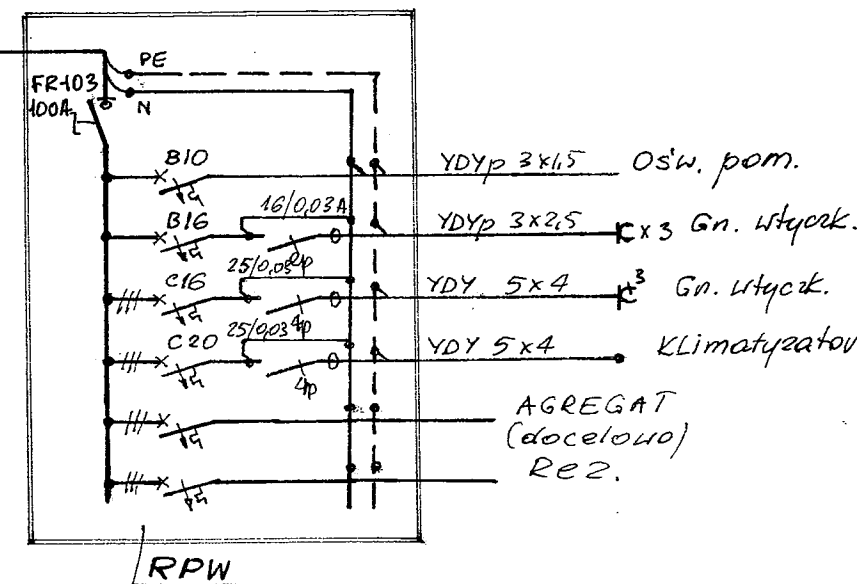 PE
FR-103
100A
N
B10
YDYp 3x1,5 Ośw. pom.
B16
16/0,03A
2p
YDYp 3x2,5 x3 Gn. wtyczk.
C16
25/0,03
4p
YDY 5x4 3 Gn. wtyczk.
C20
25/0,03
4p
YDY 5x4 Klimatyzator
AGREGAT
(docelowo)
Rez.
RPW